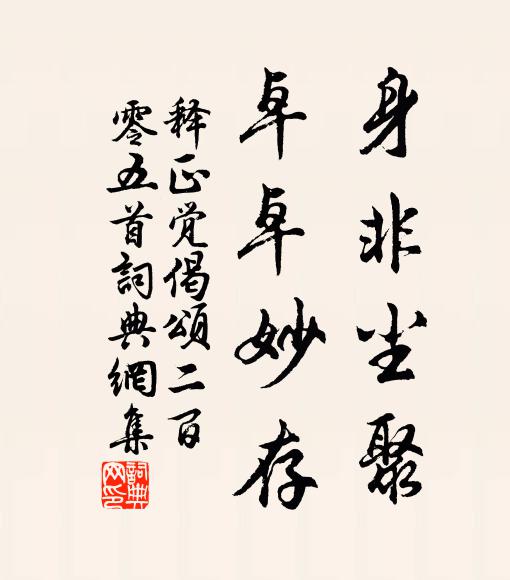 身非尘聚
卓卓妙存
释正觉偈颂二百
零五首詞典網集
詞典网印